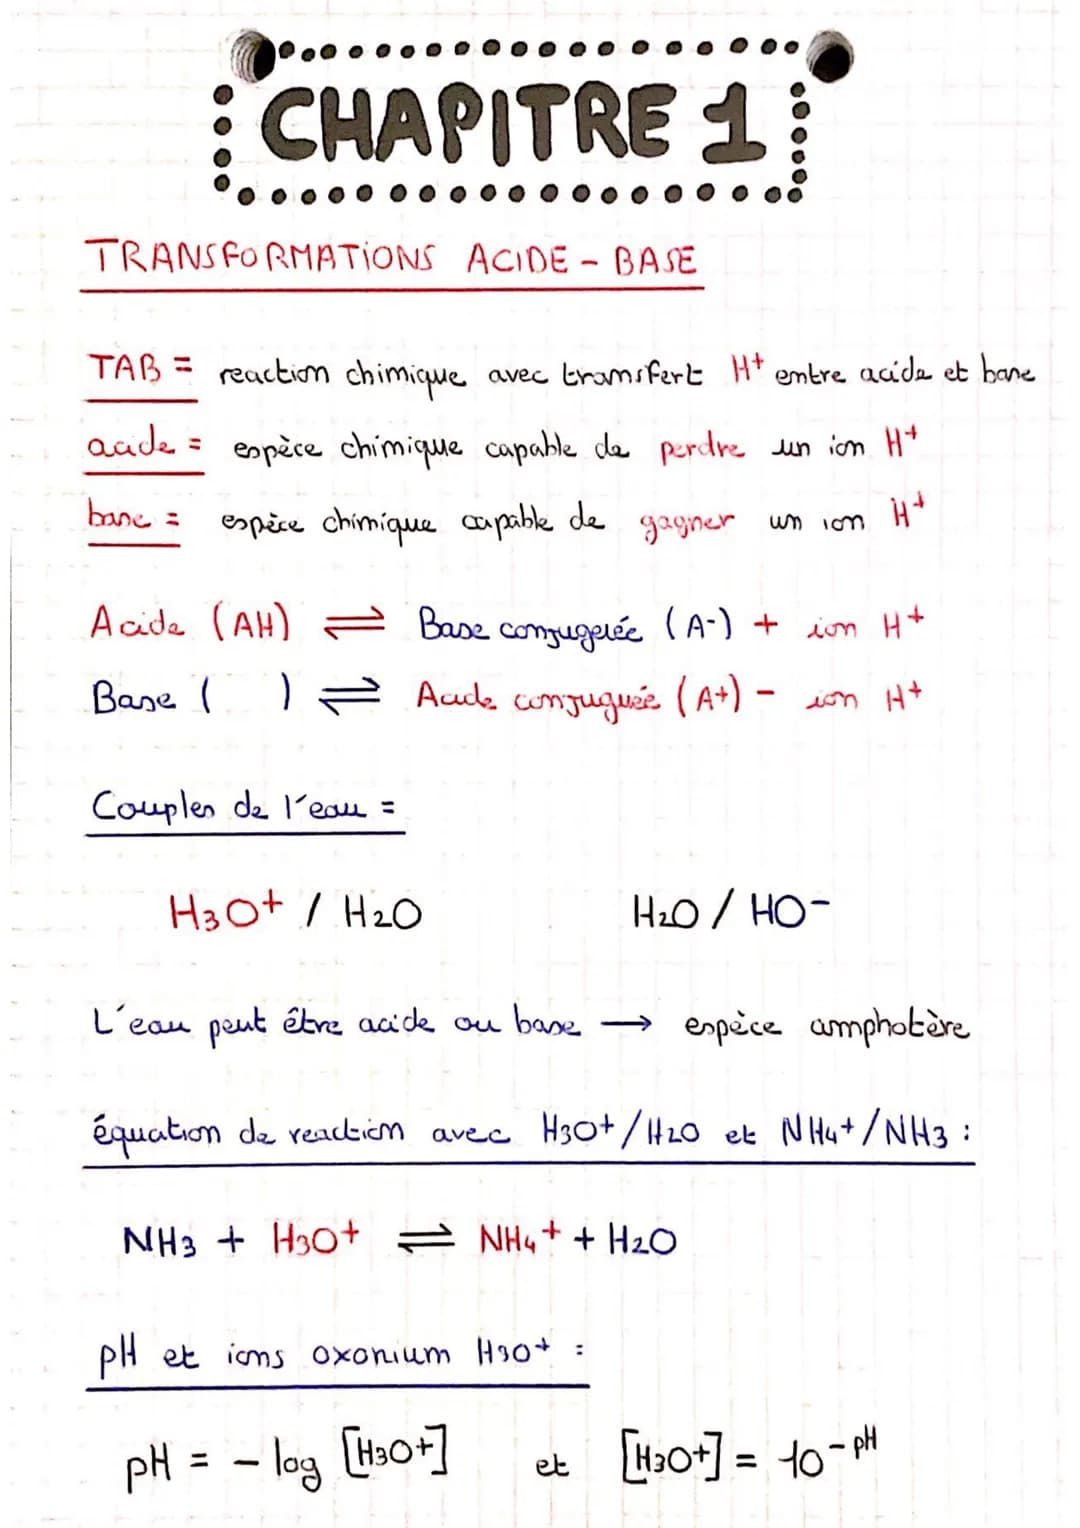 CHAPITRE 1
TRANSFORMATIONS ACIDE - BASE
TAB = reaction chimique avec transfert H+ entre acide et base
acide = espèce chimique capable de perdre un ion H+
base = espèce chimique capable de gagner un ion H+
Acide (AH) ⇌ Base conjugerée (A-) + ion H+
Base ( ) ⇌ Acide conjuguée (A+) - ion H+
Couples de l'eau =
H3O+ / H2O H2O / HO-
L'eau peut être acide ou base → espèce amphotère
équation de reaction avec H3O+/H2O et NH4+/NH3 :
NH3 + H3O+ ⇌ NH4+ + H2O
pH et ions oxonium H3O+ :
pH = - log [H3O+] et [H3O+] = 10-pH